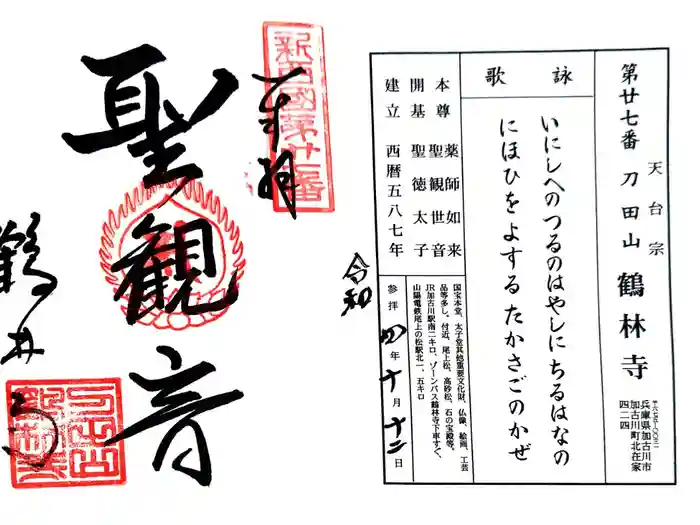 第廿七番 刀田山 鶴林寺
天台宗
兵庫県加古川市
加古川町北在家
四二四
詠歌
いにしへのつるのはやしにちるはなの
にほひをよするたかさごのかぜ
本尊 薬師如来
聖観世音
開基 聖徳太子
建立 西暦五八七年
国宝本堂、太子堂其他重要文化財、仏像、絵画、工芸
品等多し、付近、尾上松、高砂松、石の宝殿等、
JR加古川駅南二キロ、ゾーンバス鶴林寺下車すぐ、
山陽電鉄尾上の松駅北一、五キロ
令和
参拝 四年 十月 十二日
新西國第廿七番
奉拝
聖観音
鶴林寺